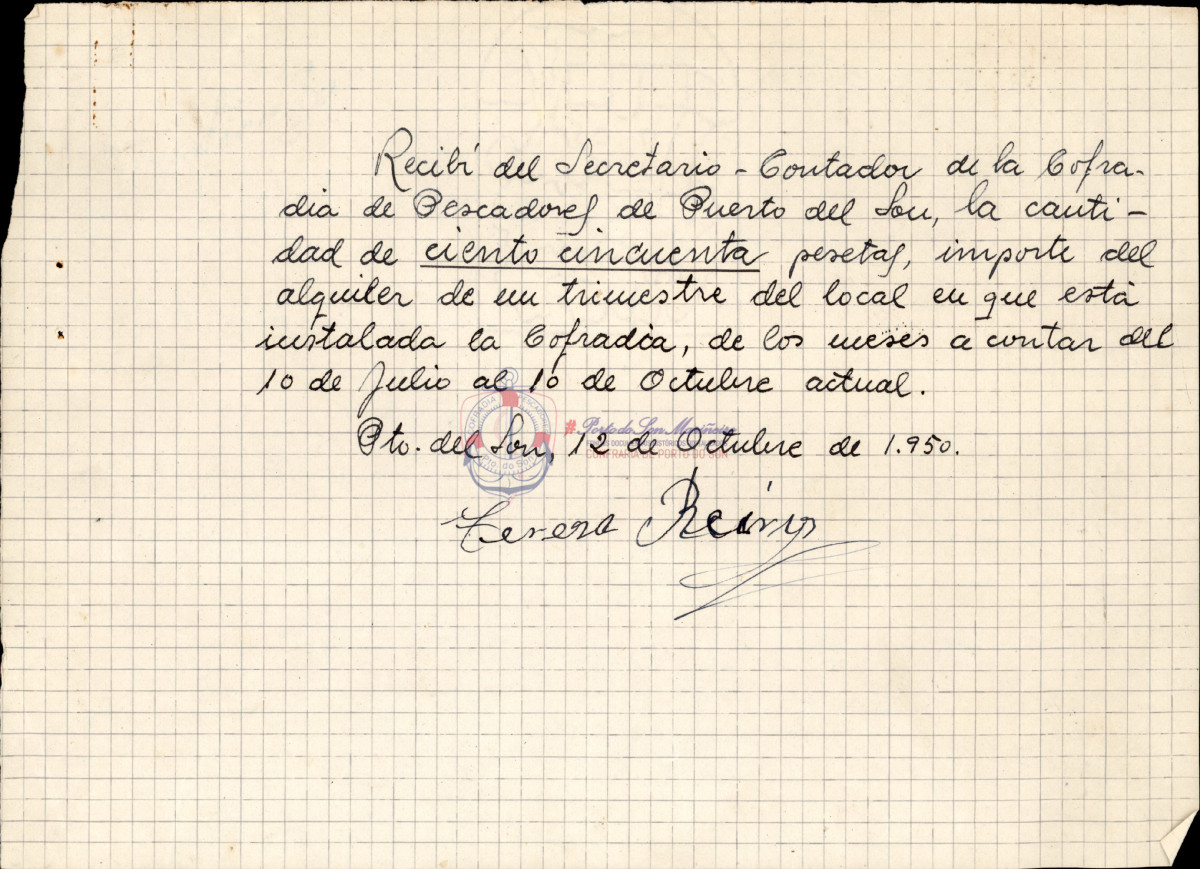 Recibí del Secretario - Contador de la Cofra-
dia de Pescadores de Puerto del Son, la canti-
dad de ciento cincuenta pesetas, importe del
alquiler de un trimestre del local en que está
instalada la Cofradia, de los meses a contar del
10 de Julio al 10 de Octubre actual.
#Porto do Son Mariñeiro
Pto. del Son, 12 de Octubre de 1.950.
CONFRARÍA DE PORTO DO SON
Teresa